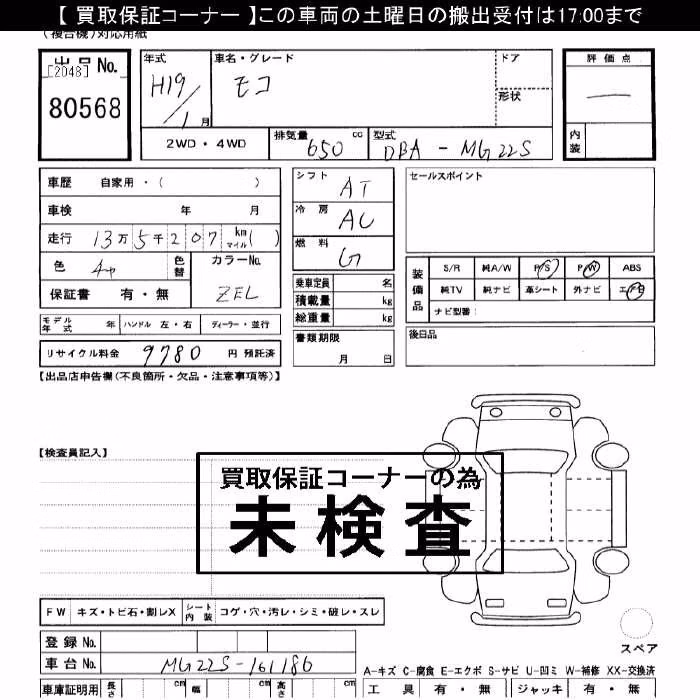 【 買取保証コーナー 】この車両の土曜日の搬出受付は17:00まで
(複合機)対応用紙
出品 No.
[2048]
80568
年式
H19/1月
車名・グレード
モコ
ドア
形状
評価点
―
内装
2WD・4WD
排気量
650 cc
型式
DBA - MG22S
車歴 自家用・( )
車検 年 月
走行 13万5千207 km マイル( )
色
色替
カラーNo.
ZEL
保証書 有・無
シフト
AT
冷房
AC
燃料
G
乗車定員 名
積載量 kg
総重量 kg
セールスポイント
装備品
S/R 純A/W P/S P/W ABS
純TV 純ナビ 革シート 外ナビ エアB
ナビ型番:
モデル年式 年 ハンドル 左・右 ディーラー・並行
リサイクル料金 9780 円 預託済
書類期限
月 日
後日品
【出品店申告欄(不良箇所・欠品・注意事項等)】
【検査員記入】
買取保証コーナーの為
未検査
FW キズ・トビ石・割レX シート内装 コゲ・穴・汚レ・シミ・破レ・スレ
登録 No.
車台 No. MG22S-161186
スペア
A-キズ C-腐食 E-エクボ S-サビ U-凹ミ W-補修 XX-交換済
車庫証明用 長さ cm 幅 cm 高さ cm
工具 有・無 ジャッキ 有・無